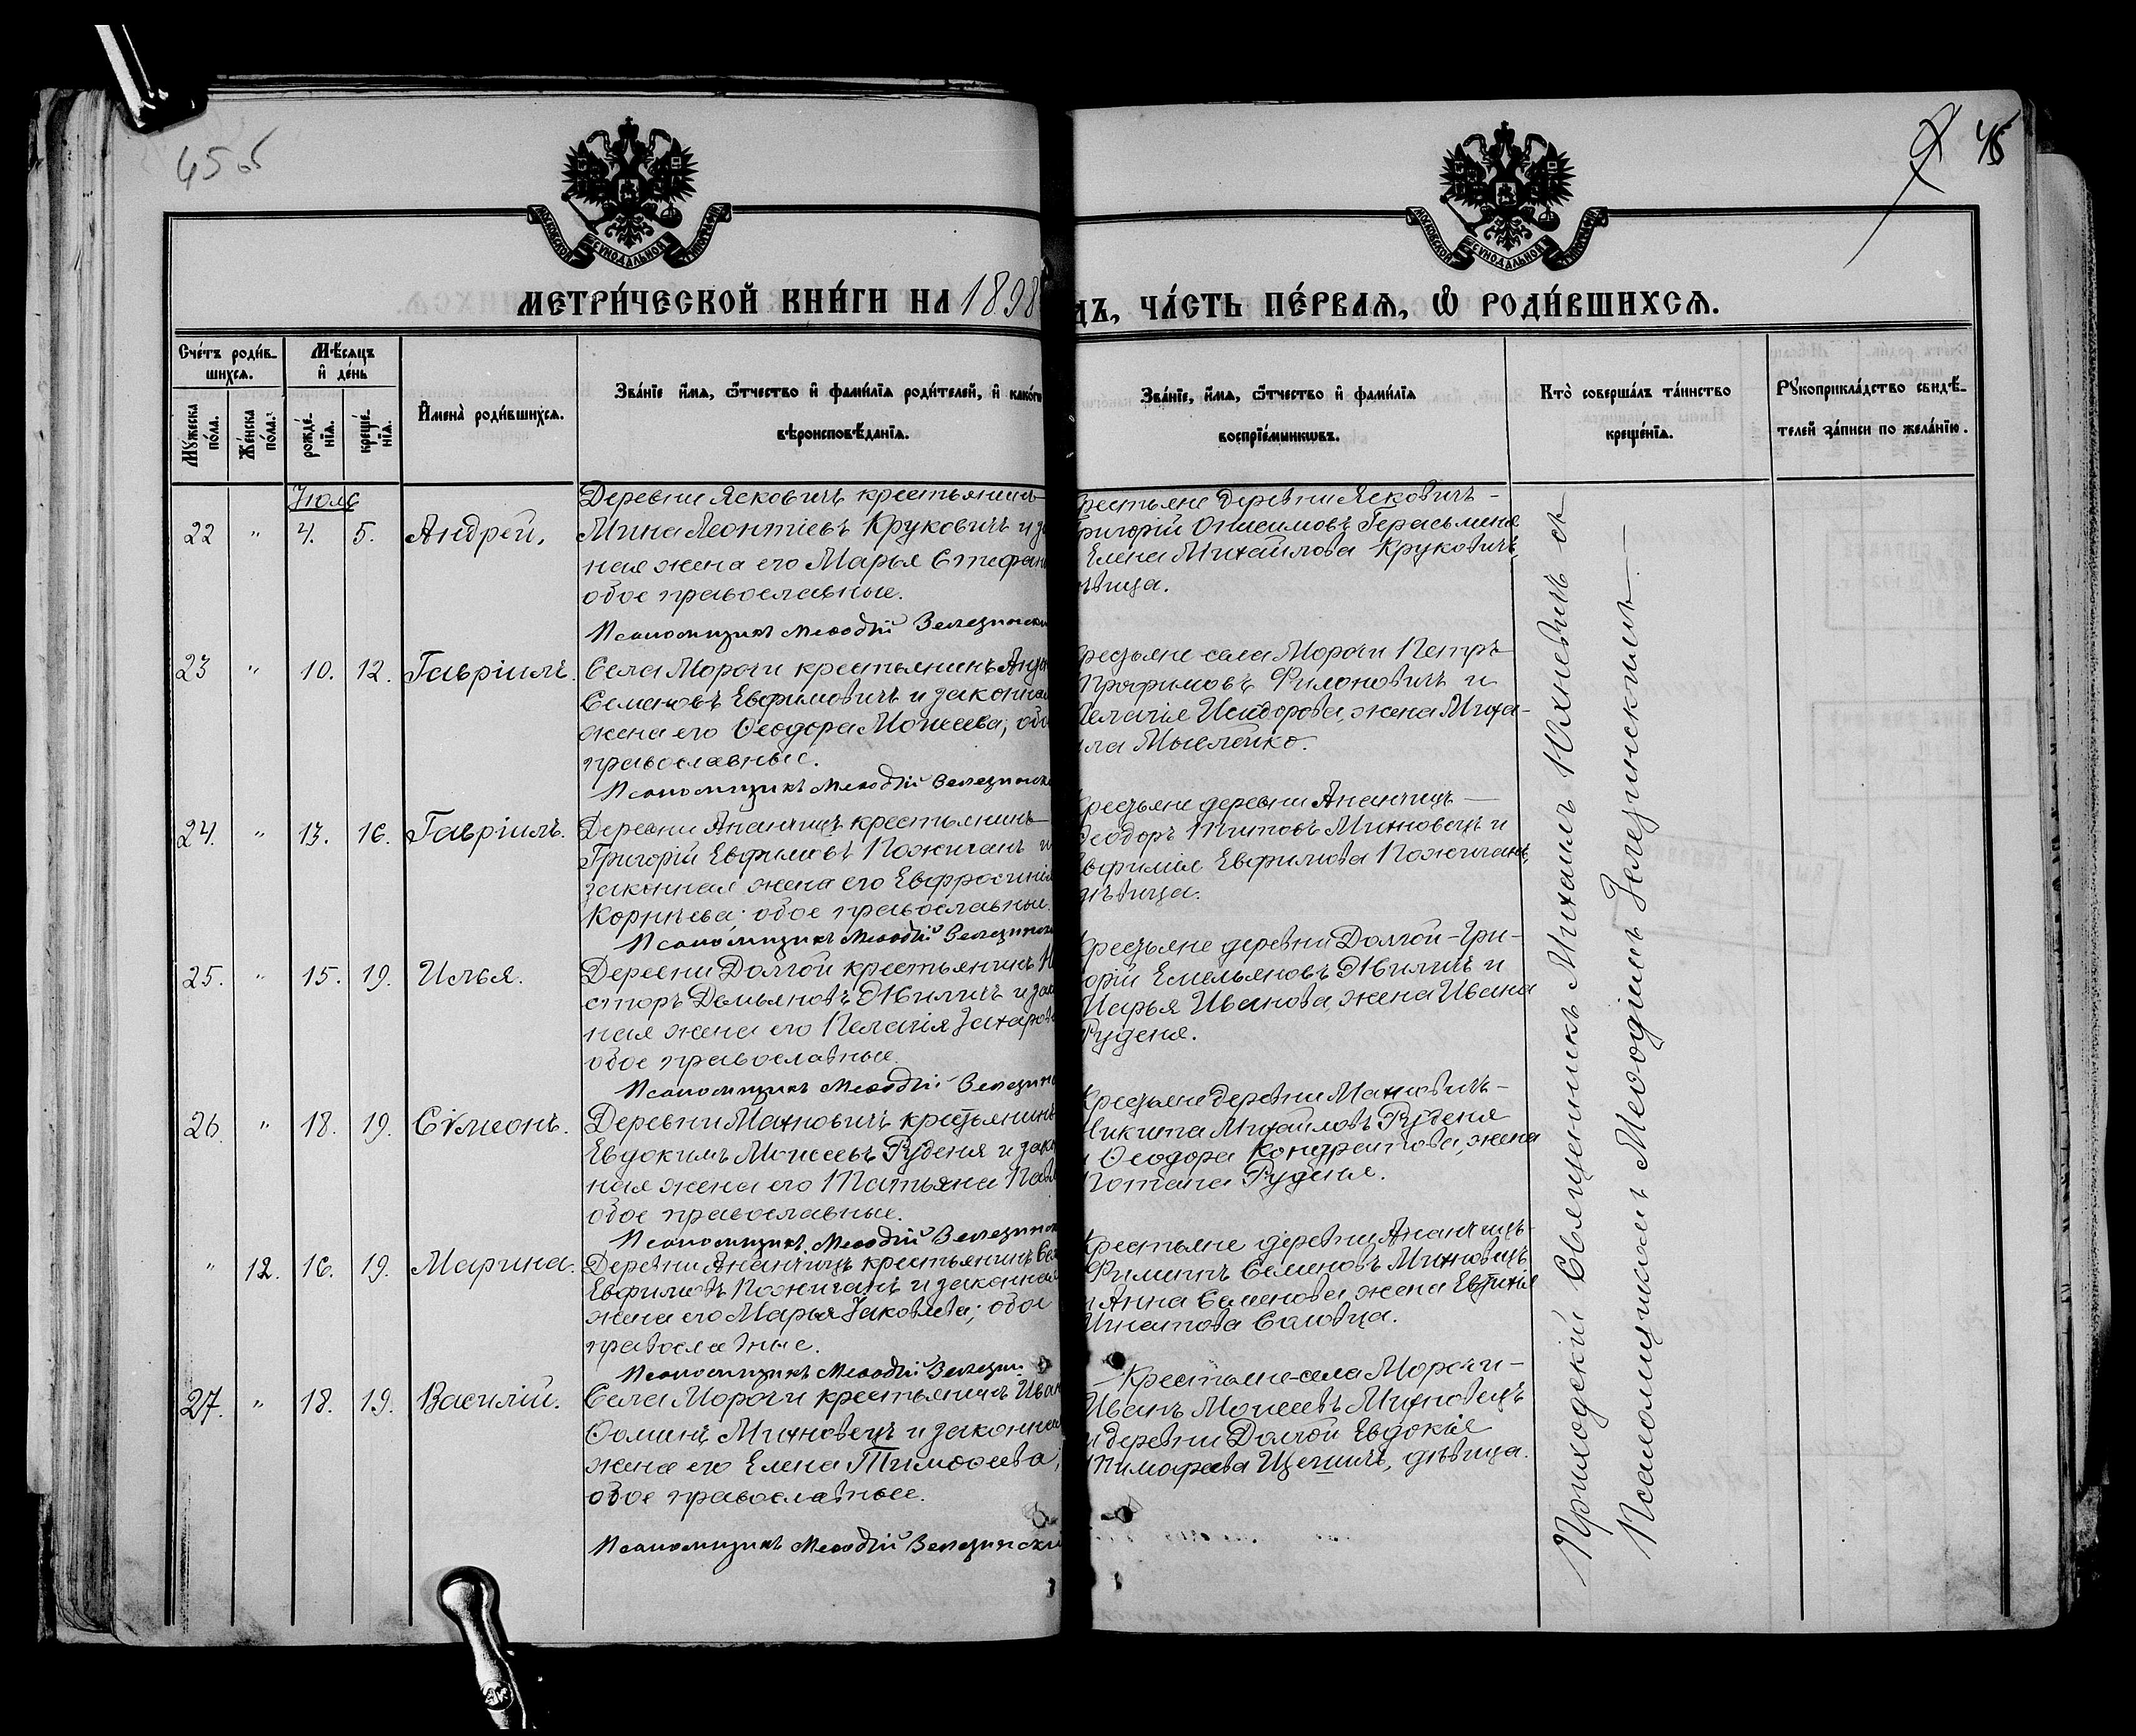 45об
45
МОСКОВСКОЙ СУНОДАЛЬНОЙ ТИПОГРАФІИ
МОСКОВСКОЙ СУНОДАЛЬНОЙ ТИПОГРАФІИ
МЕТРИ́ЧЕСКОЙ КНИ́ГИ НА 1898
ДЪ, ЧА́СТЬ ПЕ́РВАЯ, Ѽ РОДИ́ВШИХСѦ.
Сче́тъ роди́в-
шихсѧ.
Мѣ́сѧцъ
и҆ де́нь
Мꙋ́жеска
по́ла.
Же́нска
по́ла.
рожде́-
нїѧ.
креще́-
нїѧ.
И҆мена̀ роди́вшихсѧ.
Зва́нїе и҆́мѧ, ѻ҆́тчество и҆ фами́лїѧ роди́телей, и҆ како́гѡ
вѣроисповѣ́данїѧ.
Зва́нїе, и҆́мѧ, ѻ҆́тчество и҆ фами́лїѧ
воспрїе́мникѡвъ.
Кто̀ соверша́лъ та́инство
креще́нїѧ.
Рꙋкоприкла́дство свидѣ́-
телей за́писи по жела́нїю.
Іюль
22 " 4. 5. Андрей.
Деревни Ясковичъ крестьянинъ
Мина Леонтіевъ Круковичъ и за
ная жена его Марья Стефан
обое православные.
Псаломщикъ Меѳодій Зелезински
рестьяне деревни Ясковичъ -
ригорій Онисимовъ Герасименя
Елена Михайлова Круковичъ,
ѣвица.
23 " 10. 12. Гавріилъ.
Села Морочи крестьянинъ Анд
Семеновъ Евфимовичъ и законная
жена его Ѳеодора Моисеева; обо
православные.
Псаломщикъ Меѳодій Зелезинск
рестьяне села Морочи Петръ
Трофимовъ Филоновичъ и
Пелагія Исидорова, жена Миха-
ила Мыслейко.
24. " 13. 16. Гавріилъ.
Деревни Ананчицъ крестьянинъ
Григорій Евфимовъ Пожиганъ и
законная жена его Евфросинія
Корнѣева; обое православные.
Псаломщикъ Меѳодій Зелезинск
рестьяне деревни Ананчицъ —
Ѳеодоръ Титовъ Михновецъ и
вфимія Евфимова Пожиганъ,
дѣвица.
25. " 15. 19. Илья.
Деревни Долгой крестьянинъ Н
сторъ Демьяновъ Жиличъ и зак
ная жена его Пелагія Захаров
обое православные.
Псаломщикъ Меѳодій Зелезин
Крестьяне деревни Долгой - Гри-
горій Емельяновъ Жиличъ и
Марья Иванова, жена Ивана
Руденя.
26 " 18. 19. Сѵмеонъ.
Деревни Махновичъ крестьянинъ
Евдокимъ Моисеевъ Руденя и зако
ная жена его Татьяна Павл
обое православные.
Псаломщикъ Меѳодій Зелезинск
Крестьяне деревни Махновичъ -
Никита Михайловъ Руденя
и Ѳеодора Кондратова, жена
Потапа Руденя.
" 12. 16. 19. Марина.
Деревни Ананчицъ крестьянинъ Сем
Евфимовъ Пожиганъ и законная
жена его Марья Іаковлева; обое
православные.
Псаломщикъ Меѳодій Зелезин.
Крестьяне деревни Ананчицъ
Филиппъ Семеновъ Михновецъ
и Анна Семенова жена Евгенія
Игнатова Соловца.
27. " 18. 19. Василій.
Села Морочи крестьянинъ Иван
Ѳоминъ Михновецъ и законная
жена его Елена Тимоѳеева;
обое православные.
Псаломщикъ Меѳодій Зелезински
Крестьяне села Морочи -
Иванъ Моисеевъ Михновецъ
и деревни Долгой Евдокія
Тимофеева Щегличъ, дѣвица.
Приходскій Священникъ Михаилъ Юхневичъ съ
Псаломщикомъ Меѳодіемъ Зелезинскимъ.